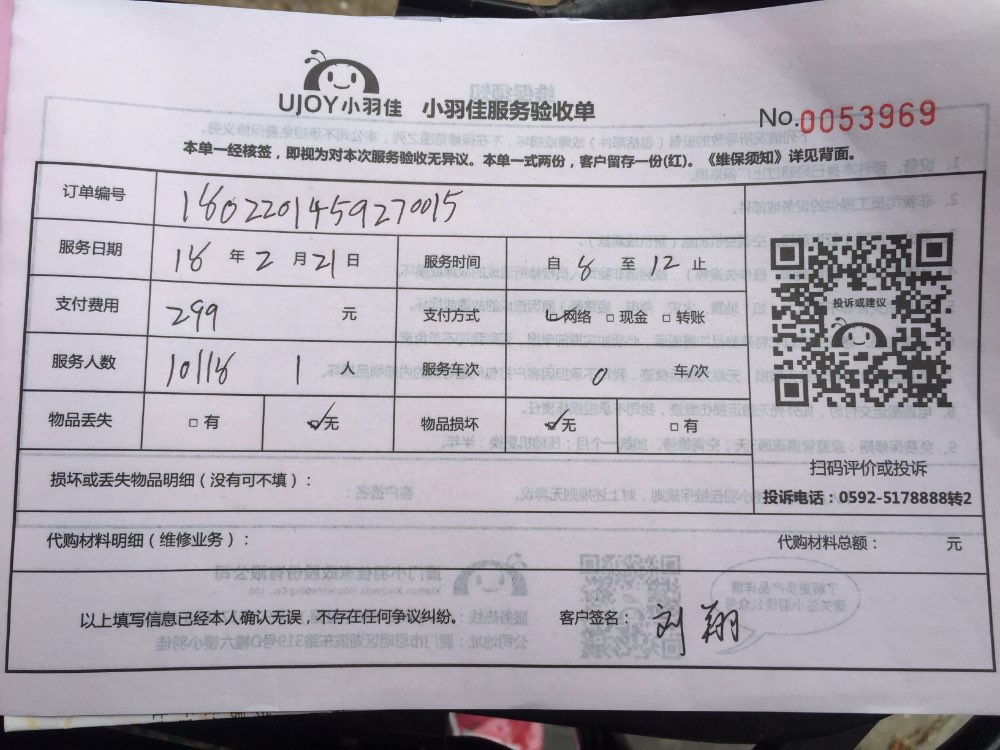 UJOY小羽佳 小羽佳服务验收单
No.0053969
本单一经核签，即视为对本次服务验收无异议。本单一式两份，客户留存一份(红)。《维保须知》详见背面。
订单编号 1802201459270015
服务日期 18 年 2 月 21 日 服务时间 自 8 至 12 止
支付费用 299 元 支付方式 网络 现金 转账
服务人数 10118 1 人 服务车次 0 车/次
物品丢失 有 无 物品损坏 无 有
投诉或建议
扫码评价或投诉
投诉电话：0592-5178888转2
损坏或丢失物品明细（没有可不填）：
代购材料明细（维修业务）： 代购材料总额： 元
以上填写信息已经本人确认无误，不存在任何争议纠纷。 客户签名：刘翔